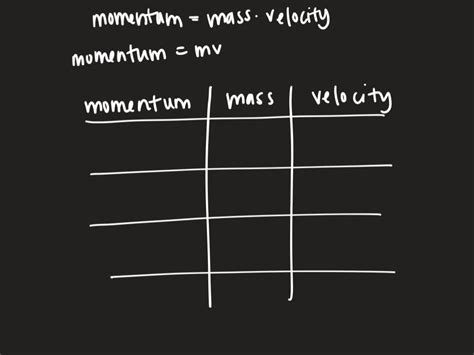 momentum = mass · velocity
momentum = mv
momentum mass velocity